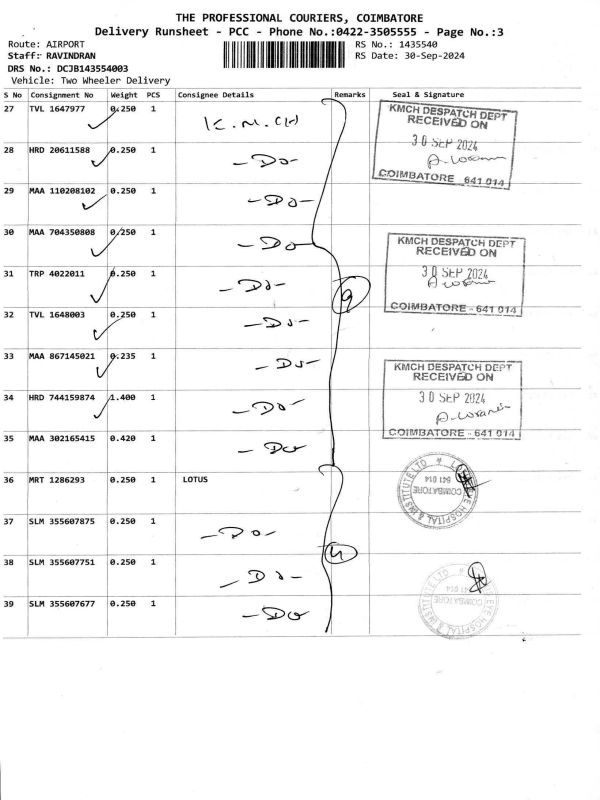 THE PROFESSIONAL COURIERS, COIMBATORE
Delivery Runsheet - PCC - Phone No.:0422-3505555 - Page No.:3
Route: AIRPORT
RS No.: 1435540
Staff: RAVINDRAN
RS Date: 30-Sep-2024
DRS No.: DCJB143554003
Vehicle: Two Wheeler Delivery
S No Consignment No Weight PCS Consignee Details Remarks Seal & Signature
27 TVL 1647977 0.250 1 K.M.CH
28 HRD 20611588 0.250 1 -Do-
29 MAA 110208102 0.250 1 -Do-
30 MAA 704350808 0.250 1 -Do-
31 TRP 4022011 0.250 1 -Do-
32 TVL 1648003 0.250 1 -Do-
33 MAA 867145021 0.235 1 -Do-
34 HRD 744159874 1.400 1 -Do-
35 MAA 302165415 0.420 1 -Do-
36 MRT 1286293 0.250 1 LOTUS
37 SLM 355607875 0.250 1 -Do-
38 SLM 355607751 0.250 1 -Do-
39 SLM 355607677 0.250 1 -Do-
9
4
KMCH DESPATCH DEPT
RECEIVED ON
30 SEP 2024
COIMBATORE 641 014
KMCH DESPATCH DEPT
RECEIVED ON
30 SEP 2024
COIMBATORE - 641 014
KMCH DESPATCH DEPT
RECEIVED ON
30 SEP 2024
COIMBATORE - 641 014
EYE HOSPITAL & INSTITUTE LTD
COIMBATORE
641 014
EYE HOSPITAL & INSTITUTE LTD
COIMBATORE
641 014